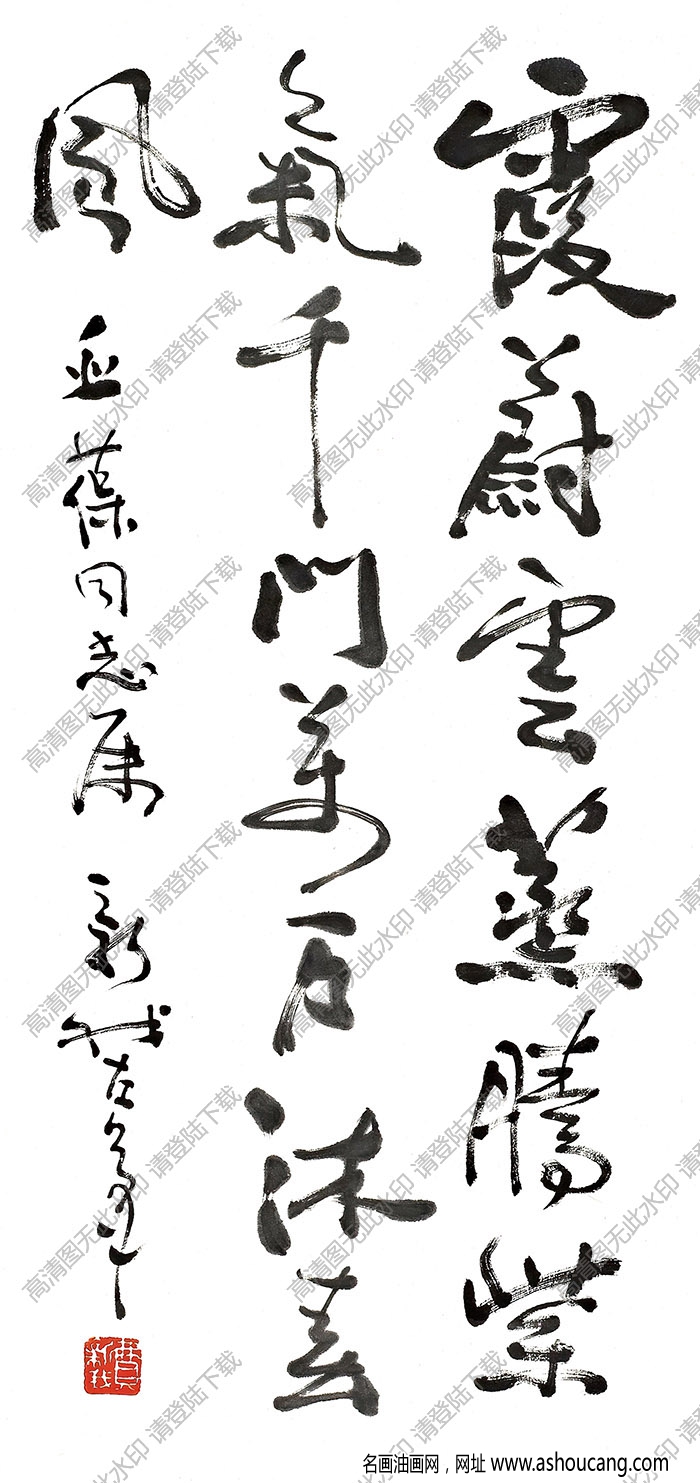 霞蔚雲蒸騰紫
氣千門萬户沐春
風
葆同志属
新我左筆
高清图无此水印 请登陆下载
名画油画网，网址 www.ashoucang.com